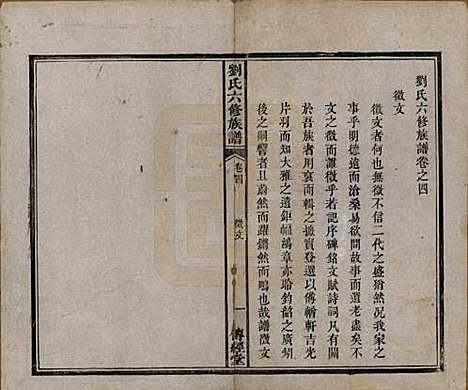 劉氏六修族譜卷之四
徵文
徵文者何也無徵不信二代之盛猶然況我家
事乎明德遠而滄桑易欲問故事而遺老盡矣不
文之徵而誰徵乎若記序碑銘文賦詩詞凡有關
於吾族者用裒而輯之摭實登選以傳
軒吉光
片羽而知大雅之遺鉅幅鴻章亦
鈞韶之廣
後之嗣響者且蔚然而躍鏘然而鳴也哉譜徵文
劉氏六修族譜
卷四
徵文
一
傳經堂